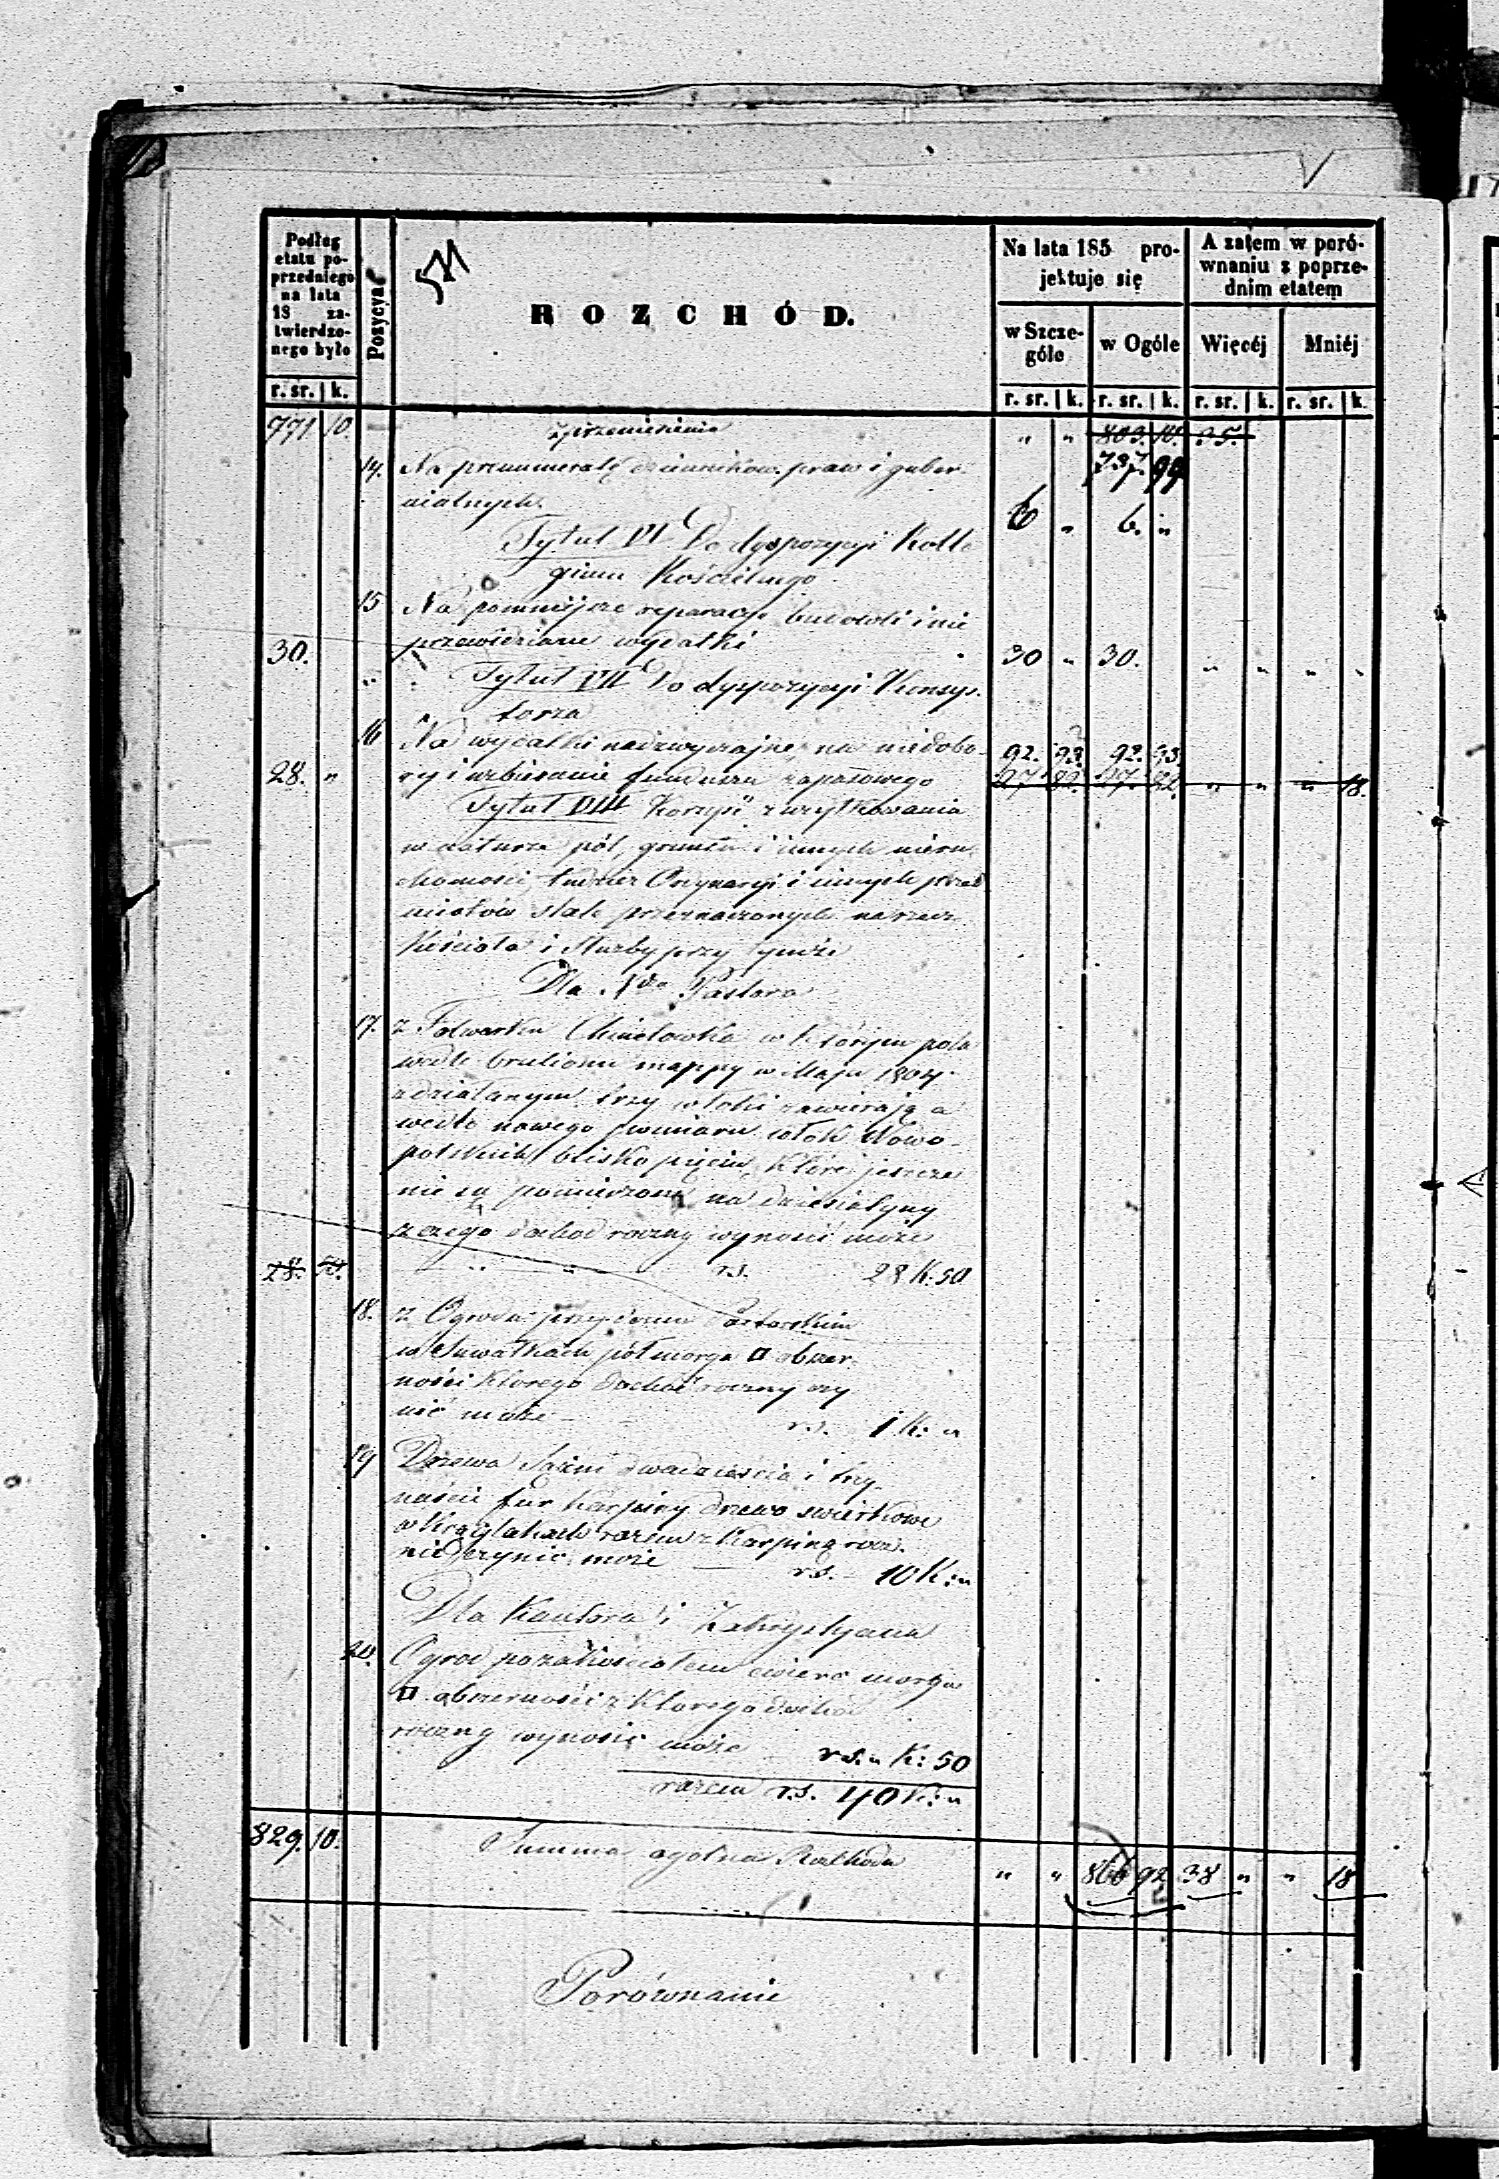 Podług etatu poprzedniego na lata 18 zatwierdzonego było
Pozycya
ROZCHÓD.
Na lata 185 projektuje się
A zatem w porównaniu z poprzednim etatem
w Szczególe
w Ogóle
Więcéj
Mniéj
r. sr. | k. r. sr. | k. r. sr. | k. r. sr. | k. r. sr. | k.
771 10. z przeniesienia " " 803. 10. 35.
737. 99
14. Na prenumeratę dzienników praw i guber-
nialnych. 6 " 6. "
Tytuł VI Do dyspozycyi Kolle
gium Kościelnego
15 Na pomniejsze reparacye budowli i nie
30. przewidziane wydatki 30 " 30. " " " "
Tytuł VII Do dyspozycyi Konsys-
torza
16 Na wydatki nadzwyczajne, na niedobo- 92. 93. 92. 93.
28. " ry i uzbieranie funduszu zapasowego 27 82. 27. 82. " " " 18.
Tytuł VIII Korzyści z użytkowania
w naturze pól, gruntów i innych nieru-
chomości, tudzież Ordynaryi i innych przed
miotów stale przeznaczonych na rzecz
Kościoła i służby przy tymże
Dla Xdza Pastora
17. z Folwarku w którym pola
wedle brulionu mappy w Maju 1804
zdziałanym trzy włoki zawierają a
wedle nowego pomiaru włók Nowo-
polskich blisko pięciu, które jeszcze
nie są pomierzone na dziesiatyny
z czego dochod roczny wynosić może
28. 50. " " rs. 28 K: 50
18. z Ogrodu przy domu Pastorskim
w Suwałkach pół morga □ obszer-
ności którego dochod roczny czy
nić może rs. 1 K: "
19 Drzewa Sążni dwadzieścia i trzy-
naście fur Karpiny drzewo świerkowe
w Krąglakach razem z Karpiną rocz-
nie czynić może rs. 10 K: "
Dla Kantora i Zakrystyana
20. Ogrod poza Kościołem ćwierć morga
□ obszerności z którego dochod
roczny wynosić może rs. " K: 50
razem rs. 40 K: "
829. 10. Summa ogólna Rozchodu " " 866 92 38 " " 18
Porównanie